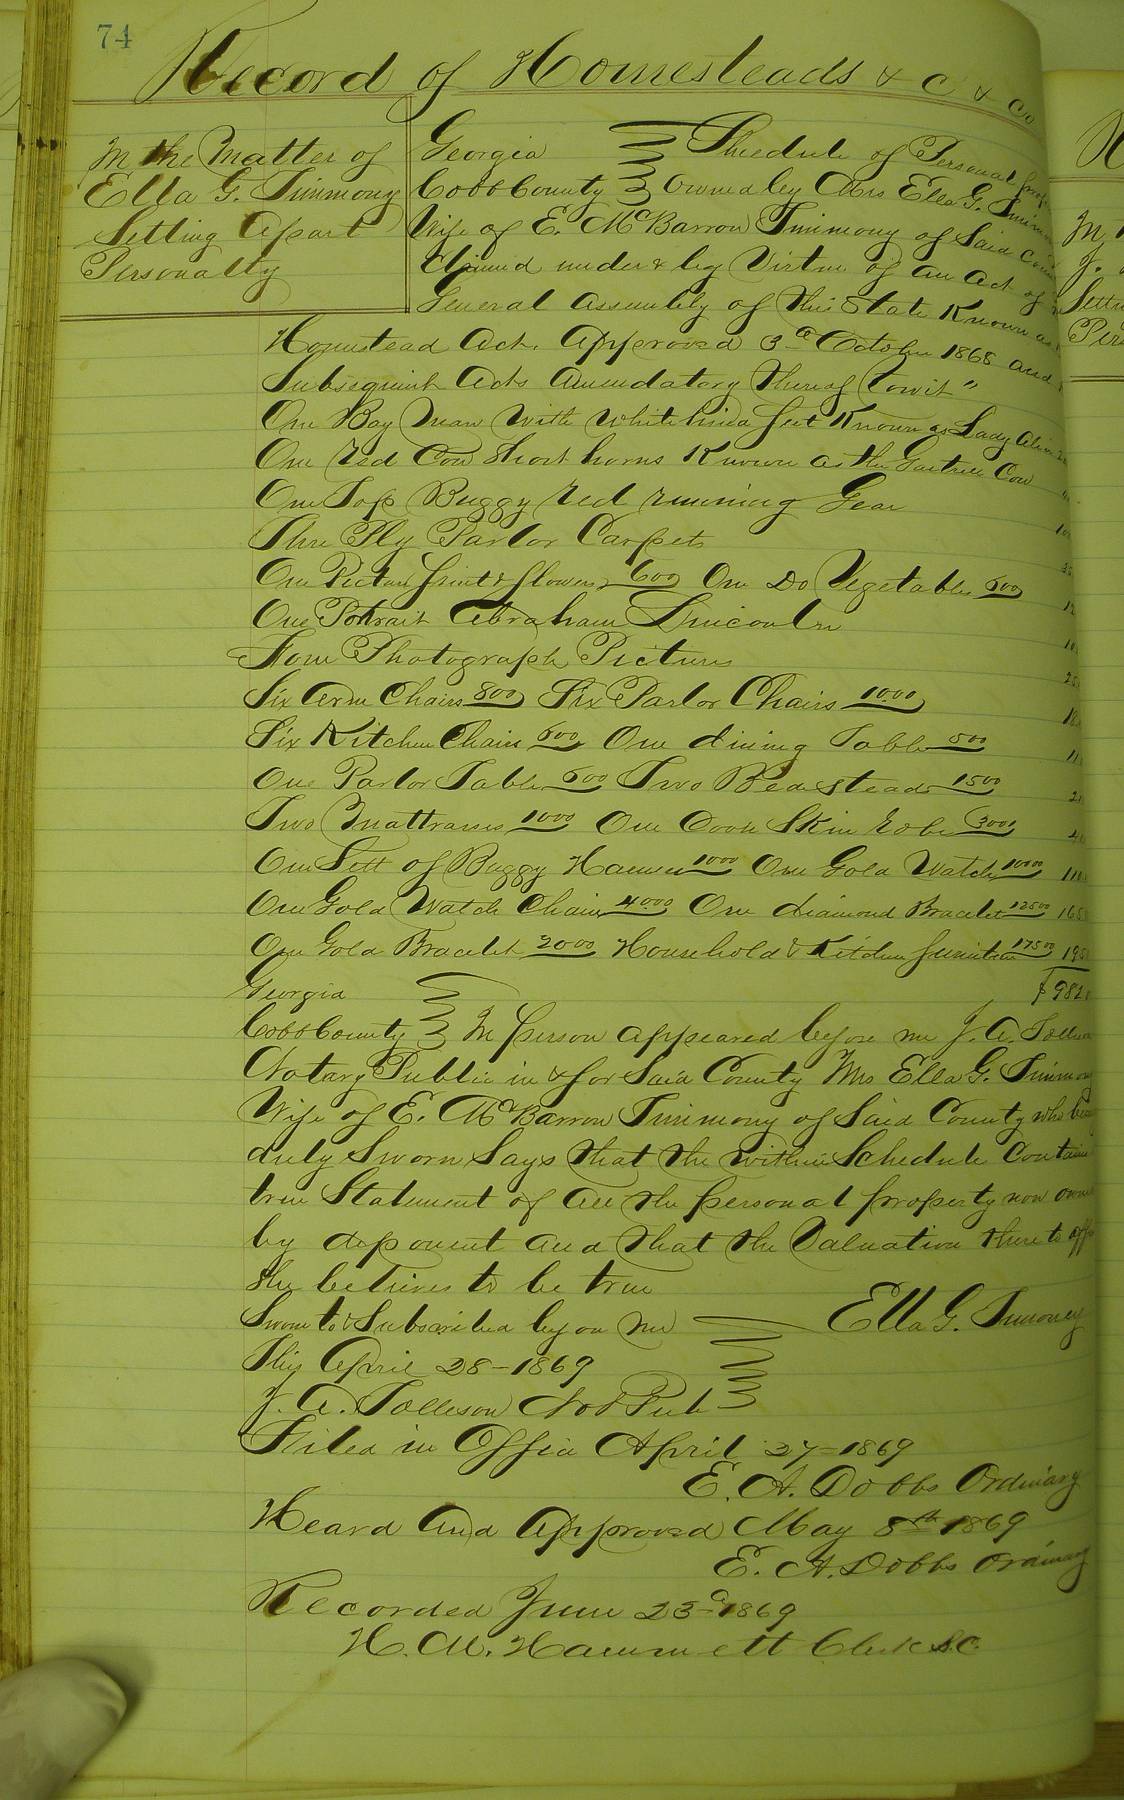 74
Record of Homesteads & C & Co
In the Matter of
Ella G. Timmony
Setting Apart
Personalty
Georgia Shedule of Personal prop
Cobb County owned by Mrs Ella G. Timm
Wife of E. McBarron Timmony of Said Coun
Claimed under & by Virtue of an Act of
General Assembly of this State Known as
Homestead Act. Approved 3d October 1868 and
Subsequent Acts Amendatory thereof towit "
One Bay Mare With White hind feet Known as Lady Alice
One Red Cow Short horns Known as the Gartrell Cow
One Top Buggy red running Gear
Three Ply Parlor Carpets
One Picture fruit & flowers 600 One Do Vegetables 600
One Potrait Abraham Lincouln
Four Photograph Pictures
Six Arm Chairs 800 Six Parlor Chairs 1000
Six Kitchen Chairs 600 One dining Table 500
One Parlor Table 600 Two Beadsteads 1500
Two Mattrasses 1000 One Coon Skin Robe 3000
One Sett of Buggy Harness 1000 One Gold Watch 10000
One Gold Watch Chain 4000 One diamond Bracelet 12500 165
One Gold Bracelet 2000 Household & Kitchen furniture 17500 195
Georgia $982
Cobb County In person appeared before me J. A. Tolleson
Notary Public in & for Said County Mrs Ella G. Timmony
Wife of E. McBarron Timmony of Said County who being
duly Sworn Says that the within Schedule Contains
true Statement of all the personal property now owned
by deponent and that the Valuation thereto affi
She believes to be true
Sworn to & Subscribed before me Ella G. Timoney
This April 28-1869
J. A. Tolleson Not Pub
Filed in Office April 27-1869
E. A. Dobbs Ordinary
Heard And Approved May 8th 1869
E. A. Dobbs Ordinary
Recorded June 23d 1869
H. M. Hammett Clerk S.C.